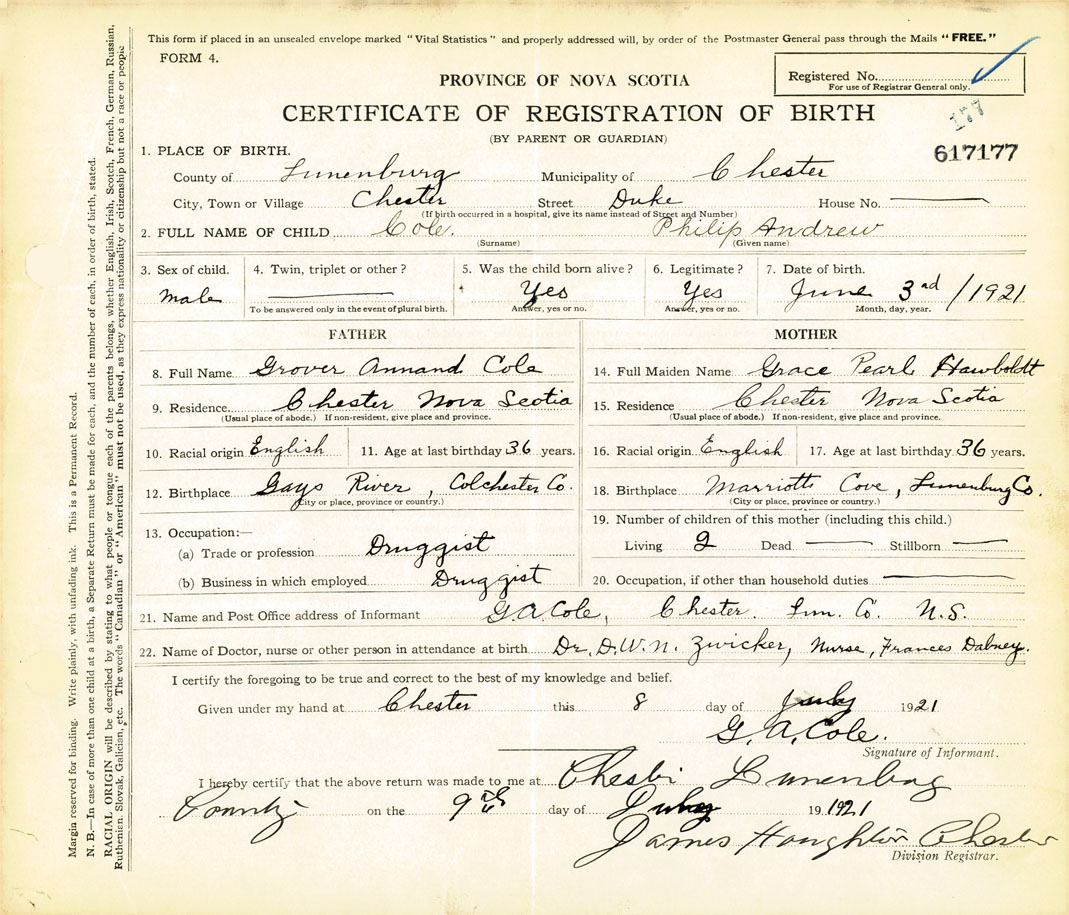 This form if placed in an unsealed envelope marked "Vital Statistics" and properly addressed will, by order of the Postmaster General pass through the Mails "FREE."
FORM 4.
Registered No.
For use of Registrar General only.
PROVINCE OF NOVA SCOTIA
CERTIFICATE OF REGISTRATION OF BIRTH
(BY PARENT OR GUARDIAN)
177
617177
1. PLACE OF BIRTH.
County of Lunenburg Municipality of Chester
City, Town or Village Chester Street Duke House No.
(If birth occurred in a hospital, give its name instead of Street and Number)
2. FULL NAME OF CHILD Cole. Philip Andrew
(Surname) (Given name)
3. Sex of child. 4. Twin, triplet or other? 5. Was the child born alive? 6. Legitimate? 7. Date of birth.
male Yes Yes June 3rd /1921
To be answered only in the event of plural birth. Answer, yes or no. Answer, yes or no. Month, day, year.
FATHER
8. Full Name Grover Annand Cole
9. Residence Chester Nova Scotia
(Usual place of abode.) If non-resident, give place and province.
10. Racial origin English 11. Age at last birthday 36 years.
12. Birthplace Gays River, Colchester Co.
(City or place, province or country.)
13. Occupation:—
(a) Trade or profession Druggist
(b) Business in which employed Druggist
MOTHER
14. Full Maiden Name Grace Pearl Hawboldt
15. Residence Chester Nova Scotia
(Usual place of abode.) If non-resident, give place and province.
16. Racial origin English 17. Age at last birthday 36 years.
18. Birthplace Marriotts Cove, Lunenburg Co.
(City or place, province or country.)
19. Number of children of this mother (including this child.)
Living 2 Dead Stillborn
20. Occupation, if other than household duties
21. Name and Post Office address of Informant G.A. Cole, Chester. Lun. Co. N.S.
22. Name of Doctor, nurse or other person in attendance at birth Dr. D.W.N. Zwicker, Nurse, Frances Dabney.
I certify the foregoing to be true and correct to the best of my knowledge and belief.
Given under my hand at Chester this 8 day of July 1921
G. A. Cole.
Signature of Informant.
I hereby certify that the above return was made to me at Chester Lunenburg
County on the 9th day of July 19 1921
James Houghton Chester
Division Registrar.
Margin reserved for binding. Write plainly, with unfading ink. This is a Permanent Record.
N. B.—In case of more than one child at a birth, a Separate Return must be made for each, and the number of each, in order of birth, stated.
RACIAL ORIGIN will be described by stating to what people or tongue each of the parents belongs, whether English, Irish, Scotch, French, German, Russian,
Ruthenien, Slovak, Galician, etc. The words "Canadian" or "American" must not be used, as they express nationality or citizenship but not a race or people